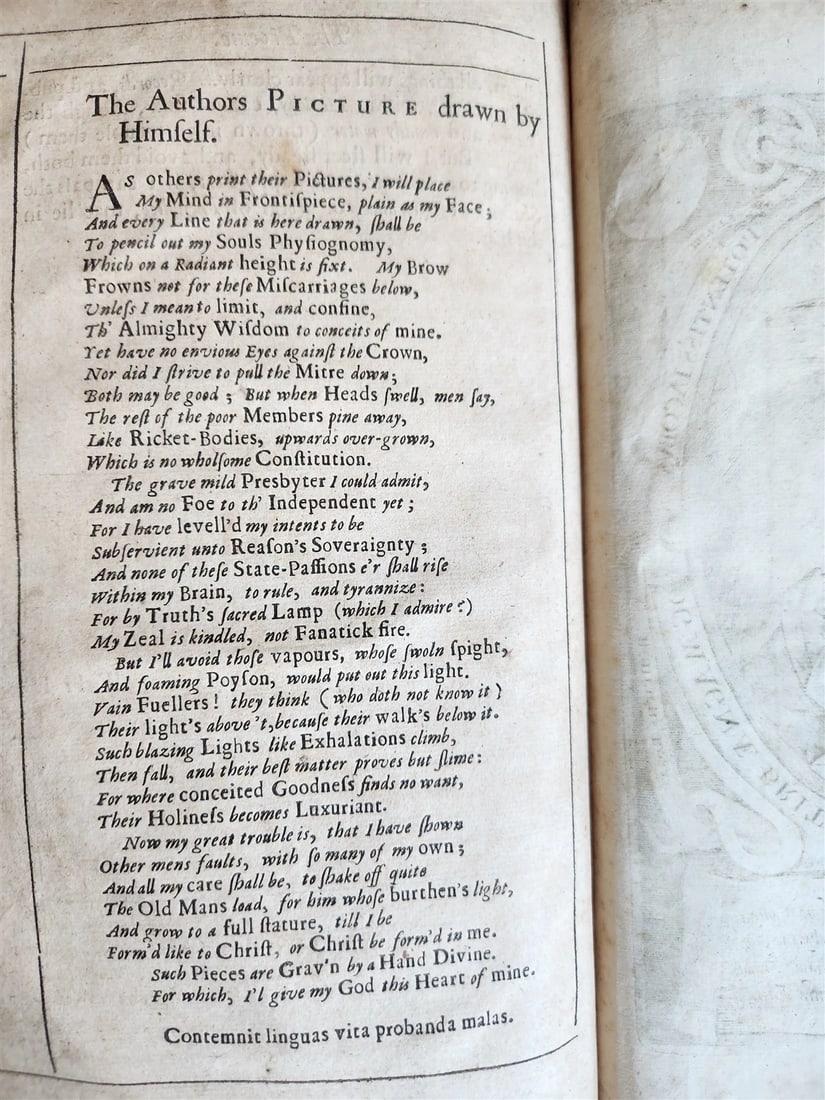 The Authors PICTURE drawn by
Himſelf.
As others print their Pictures, I will place
My Mind in Frontiſpiece, plain as my Face;
And every Line that is here drawn, ſhall be
To pencil out my Souls Phyſiognomy,
Which on a Radiant height is fixt. My Brow
Frowns not for theſe Miſcarriages below,
Unleſs I mean to limit, and confine,
Th' Almighty Wiſdom to conceits of mine.
Yet have no envious Eyes againſt the Crown,
Nor did I ſtrive to pull the Mitre down;
Both may be good; But when Heads ſwell, men ſay,
The reſt of the poor Members pine away,
Like Ricket-Bodies, upwards over-grown,
Which is no wholſome Conſtitution.
The grave mild Presbyter I could admit,
And am no Foe to th' Independent yet;
For I have levell'd my intents to be
Subſervient unto Reaſon's Soveraignty;
And none of theſe State-Paſſions e'r ſhall riſe
Within my Brain, to rule, and tyrannize:
For by Truth's ſacred Lamp (which I admire?)
My Zeal is kindled, not Fanatick fire.
But I'll avoid thoſe vapours, whoſe ſwoln ſpight,
And foaming Poyſon, would put out this light.
Vain Fuellers! they think (who doth not know it)
Their light's above 't, becauſe their walk's below it.
Such blazing Lights like Exhalations climb,
Then fall, and their beſt matter proves but ſlime:
For where conceited Goodneſs finds no want,
Their Holineſs becomes Luxuriant.
Now my great trouble is, that I have ſhown
Other mens faults, with ſo many of my own;
And all my care ſhall be, to ſhake off quite
The Old Mans load, for him whoſe burthen's light,
And grow to a full ſtature, till I be
Form'd like to Chriſt, or Chriſt be form'd in me.
Such Pieces are Grav'n by a Hand Divine.
For which, I'l give my God this Heart of mine.
Contemnit linguas vita probanda malas.